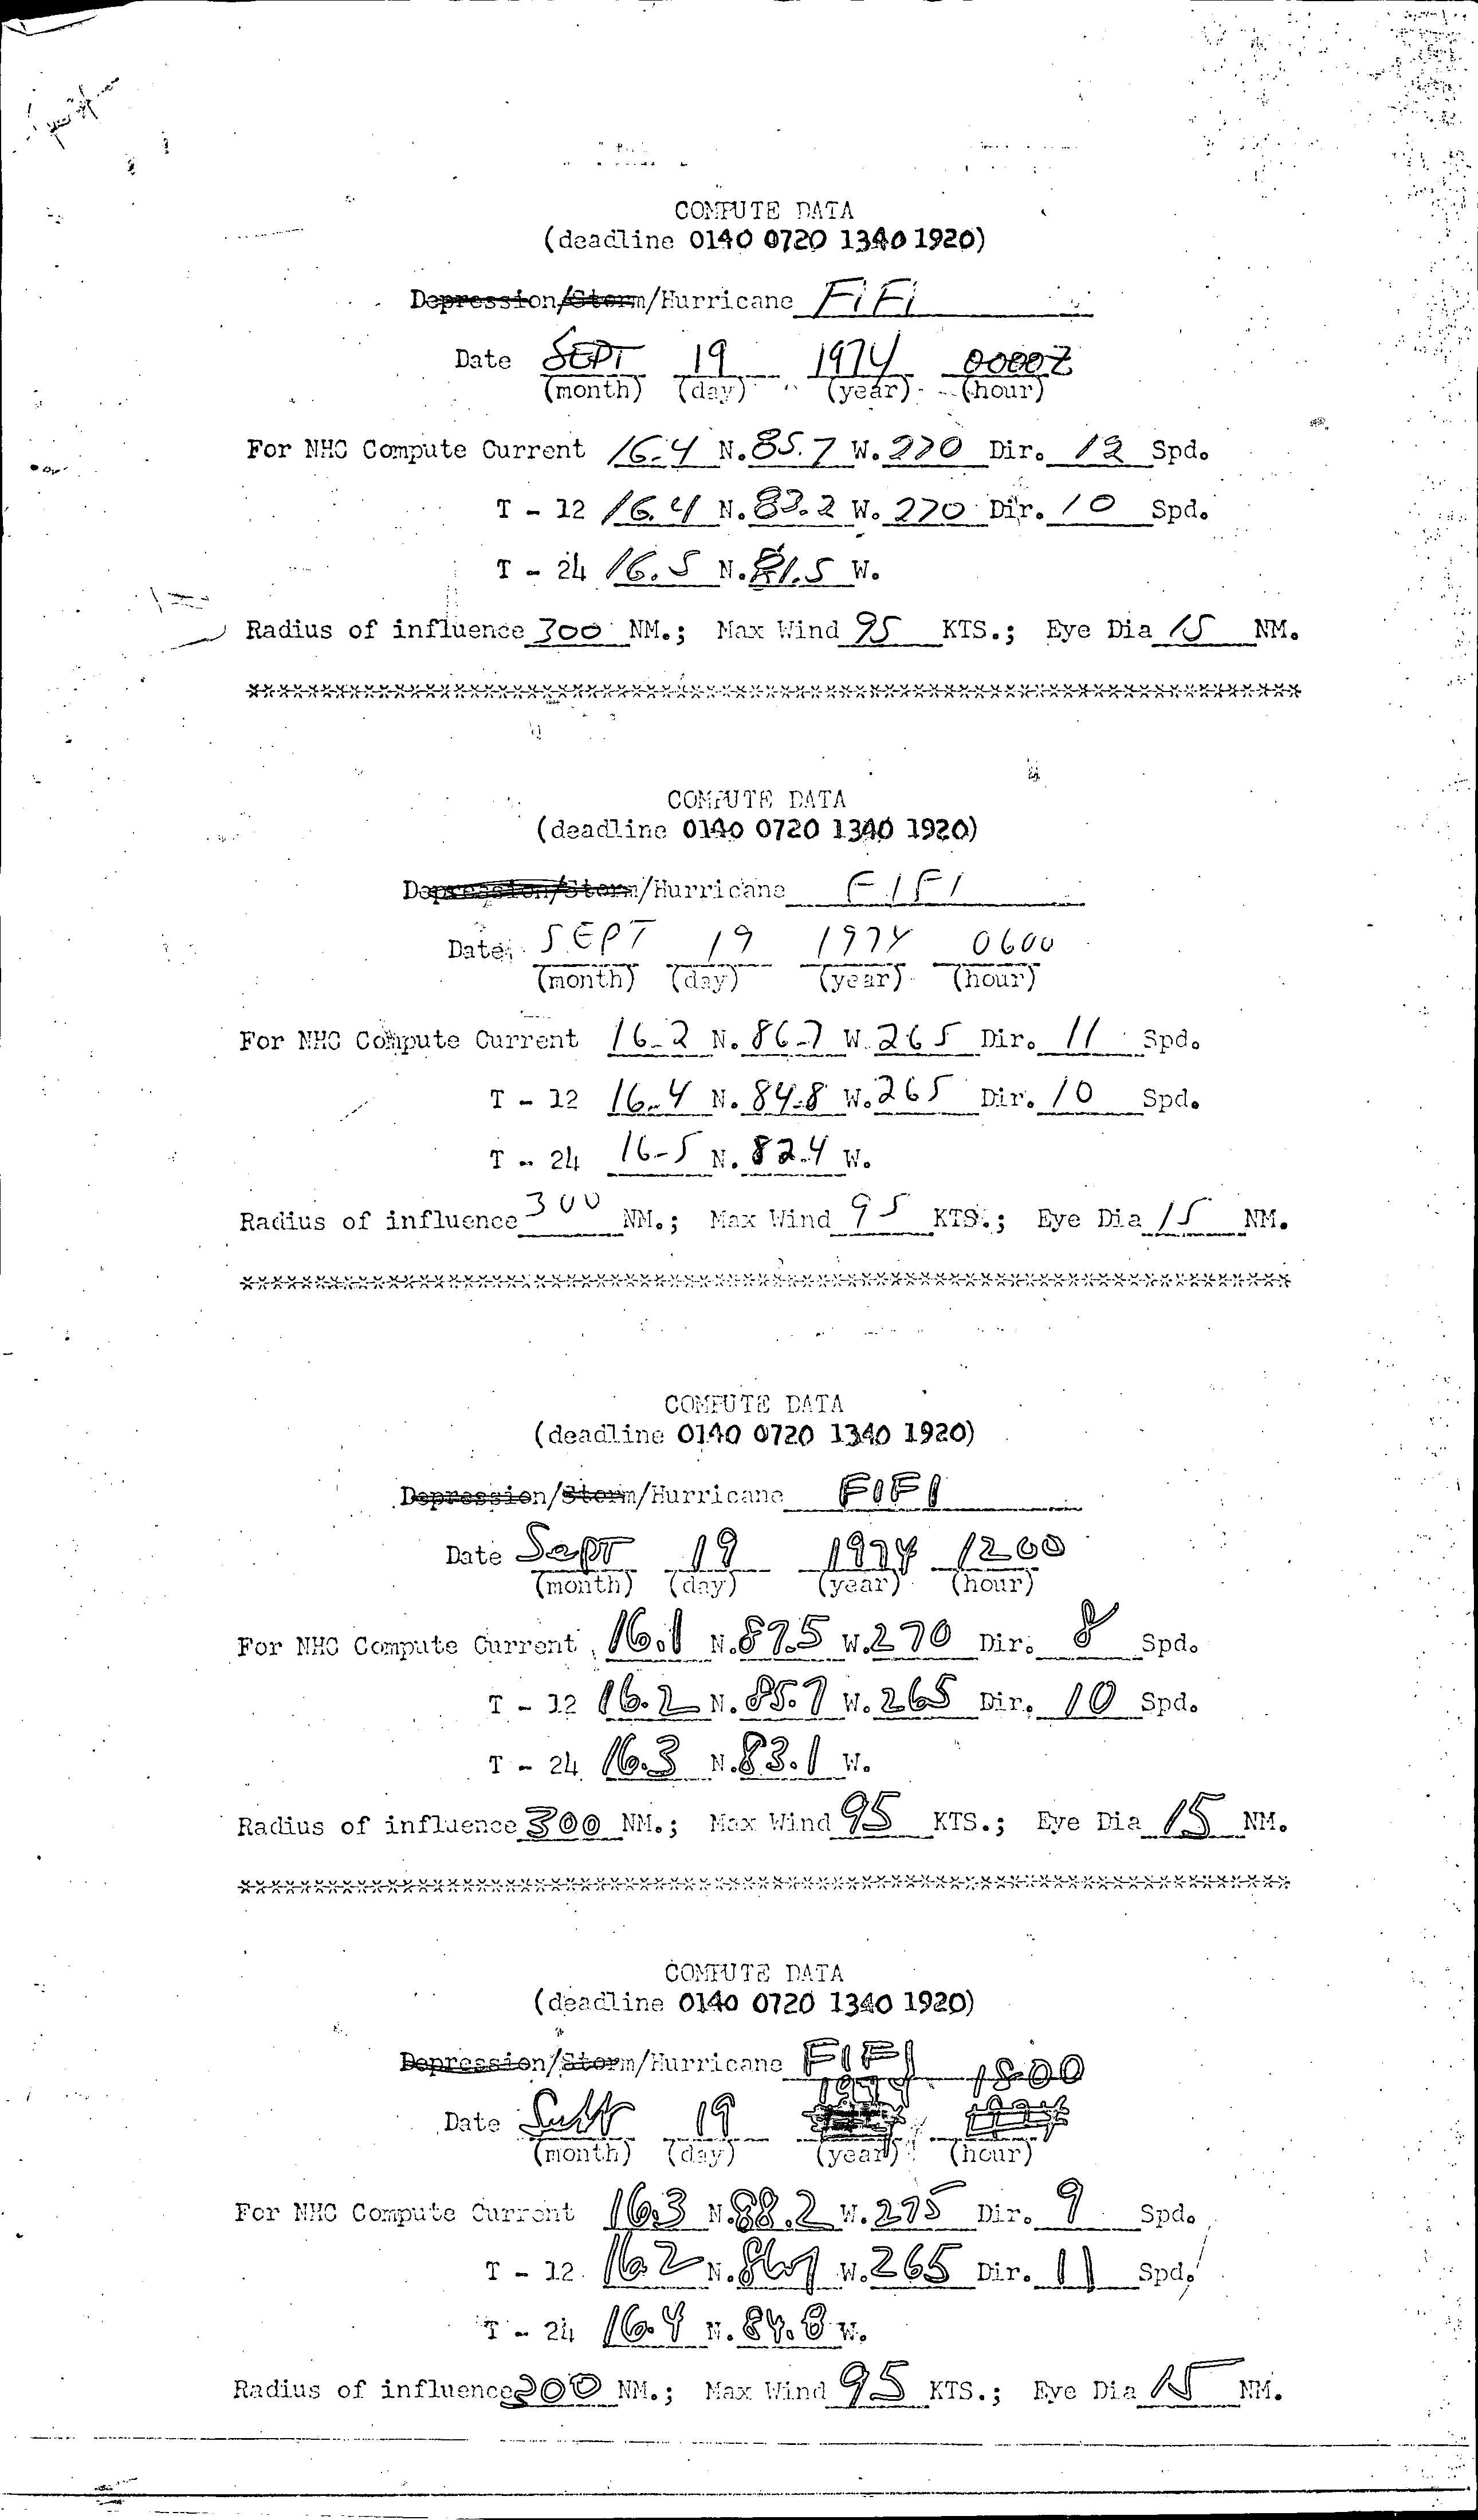 COMPUTE DATA
(deadline 0140 0720 1340 1920)
Depression/Storm/Hurricane FiFi
Date SEPT 19 1974 0000Z
(month) (day) (year) (hour)
For NHC Compute Current 16.4 N. 85.7 W. 270 Dir. 12 Spd.
T - 12 16.4 N. 83.2 W. 270 Dir. 10 Spd.
T - 24 16.5 N. 81.5 W.
Radius of influence 300 NM.; Max Wind 95 KTS.; Eye Dia 15 NM.
COMPUTE DATA
(deadline 0140 0720 1340 1920)
Depression/Storm/Hurricane FIFI
Date SEPT 19 1974 0600
(month) (day) (year) (hour)
For NHC Compute Current 16.2 N. 86.7 W. 265 Dir. 11 Spd.
T - 12 16.4 N. 84.8 W. 265 Dir. 10 Spd.
T - 24 16.5 N. 82.4 W.
Radius of influence 300 NM.; Max Wind 95 KTS.; Eye Dia 15 NM.
COMPUTE DATA
(deadline 0140 0720 1340 1920)
Depression/Storm/Hurricane FIFI
Date Sept 19 1974 1200
(month) (day) (year) (hour)
For NHC Compute Current 16.1 N. 87.5 W. 270 Dir. 8 Spd.
T - 12 16.2 N. 85.7 W. 265 Dir. 10 Spd.
T - 24 16.3 N. 83.1 W.
Radius of influence 300 NM.; Max Wind 95 KTS.; Eye Dia 15 NM.
COMPUTE DATA
(deadline 0140 0720 1340 1920)
Depression/Storm/Hurricane FIFI
Date Sept 19 1974 1800
(month) (day) (year) (hour)
For NHC Compute Current 16.3 N. 88.2 W. 275 Dir. 9 Spd.
T - 12 16.2 N. 86.7 W. 265 Dir. 11 Spd.
T - 24 16.4 N. 84.8 W.
Radius of influence 200 NM.; Max Wind 95 KTS.; Eye Dia 15 NM.